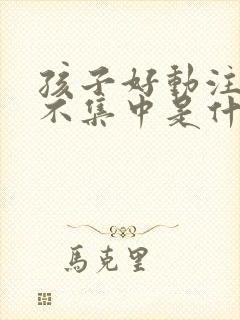 孩子好動注
不集中是什
馬克里